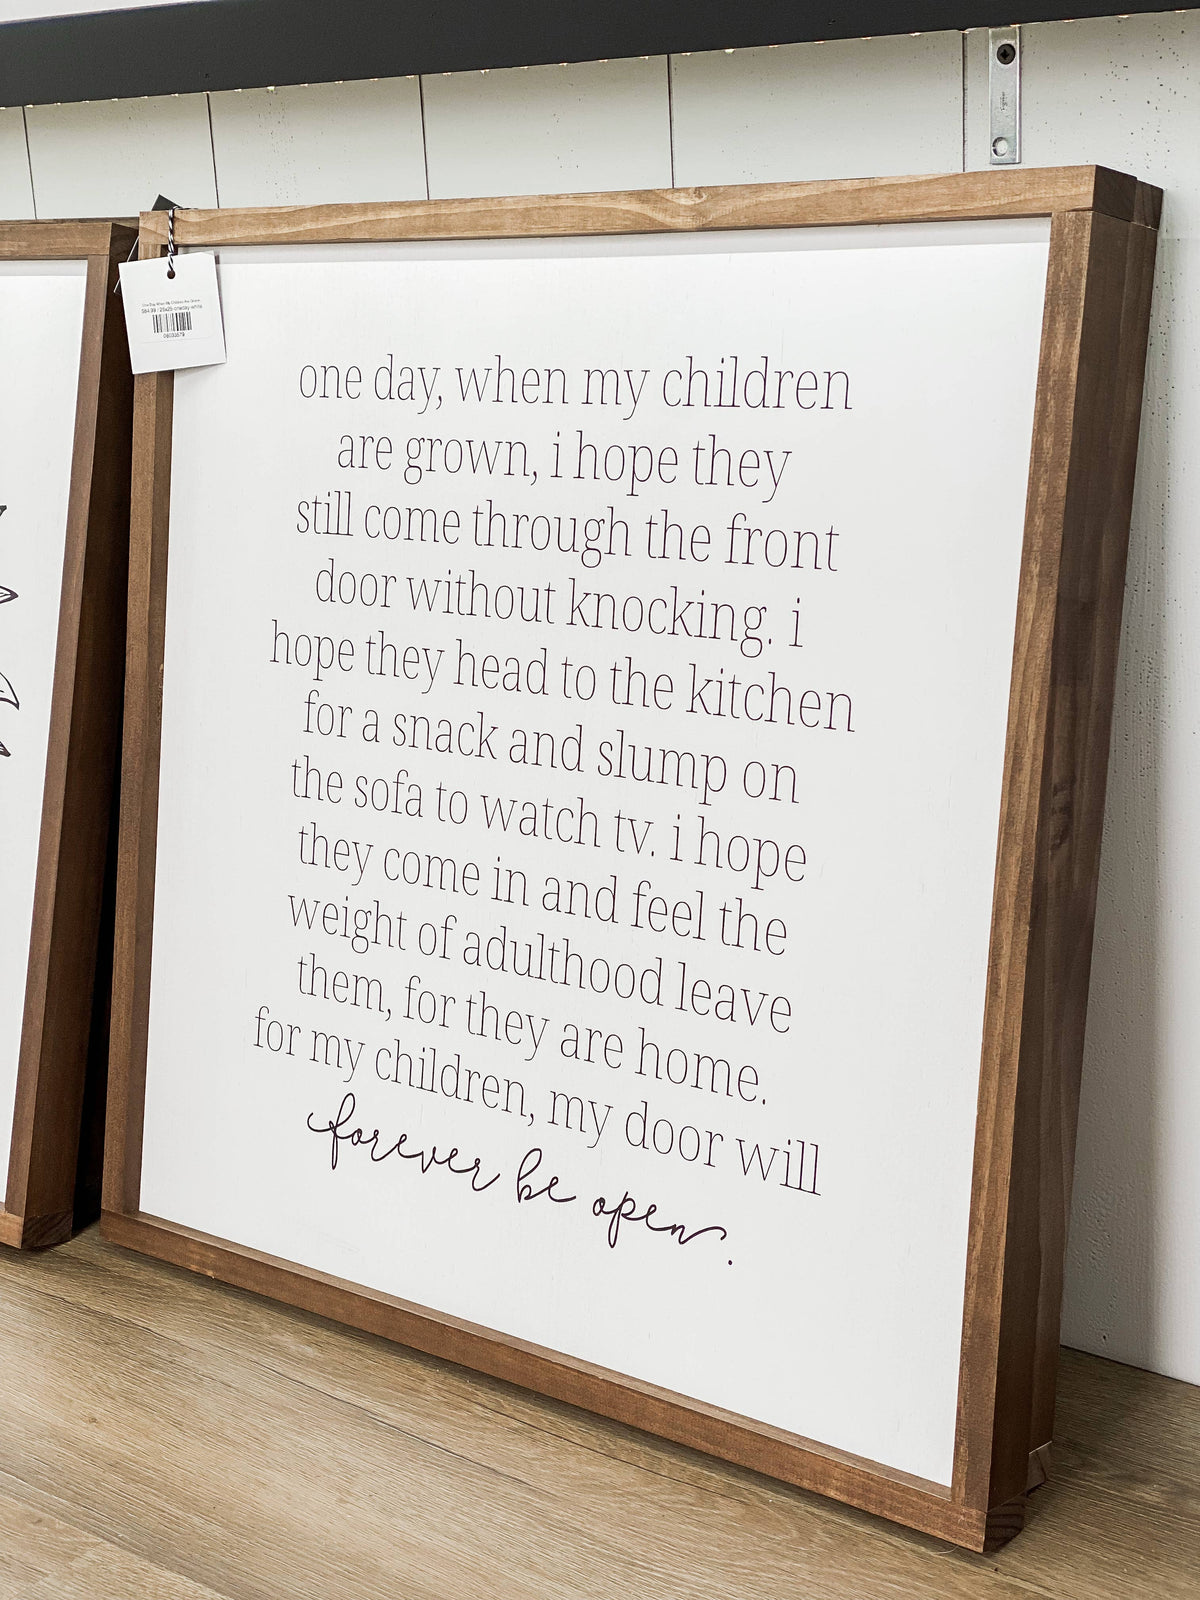 one day, when my children
are grown, i hope they
still come through the front
door without knocking. i
hope they head to the kitchen
for a snack and slump on
the sofa to watch tv. i hope
they come in and feel the
weight of adulthood leave
them, for they are home.
for my children, my door will
forever be open.